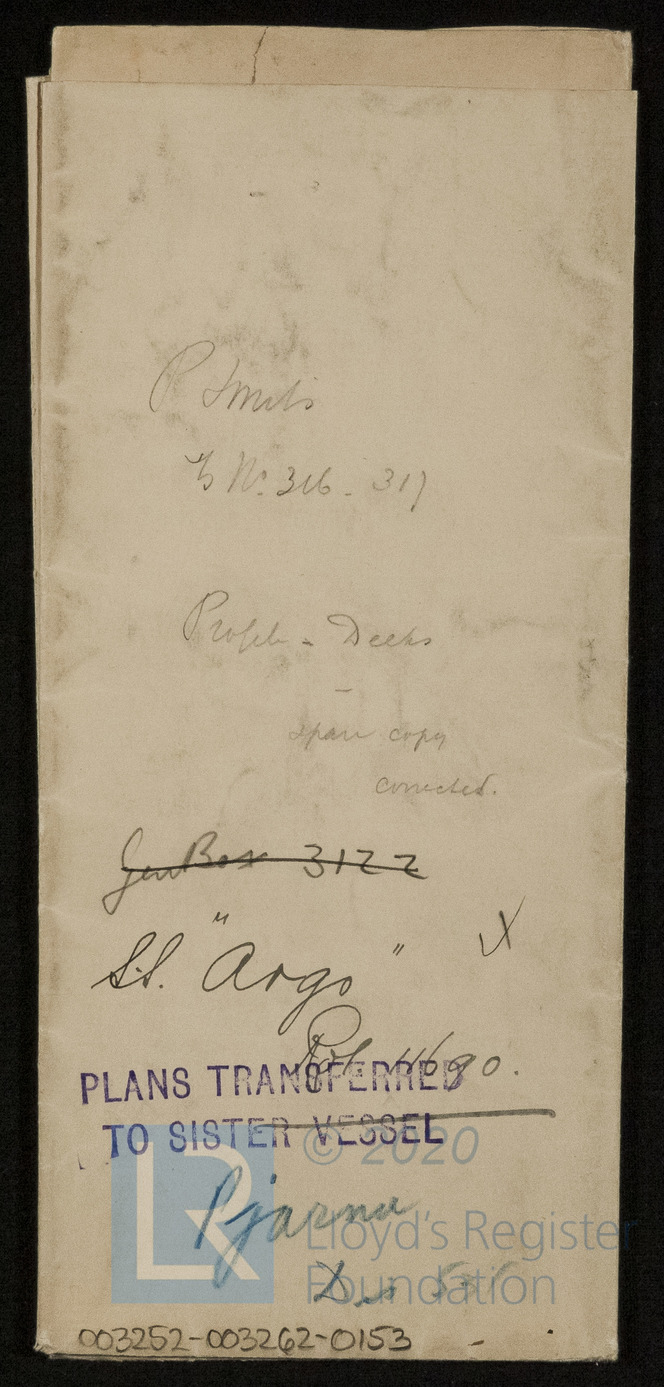 P Smits
No. 316 - 317
Profile - Decks
-
spare copy
corrected.
Gen Box 3122
S.S. "Argo" X
Rot. 11690.
PLANS TRANSFERRED
TO SISTER VESSEL
© 2020
LR
Lloyd's Register
Foundation
003252-003262-0153